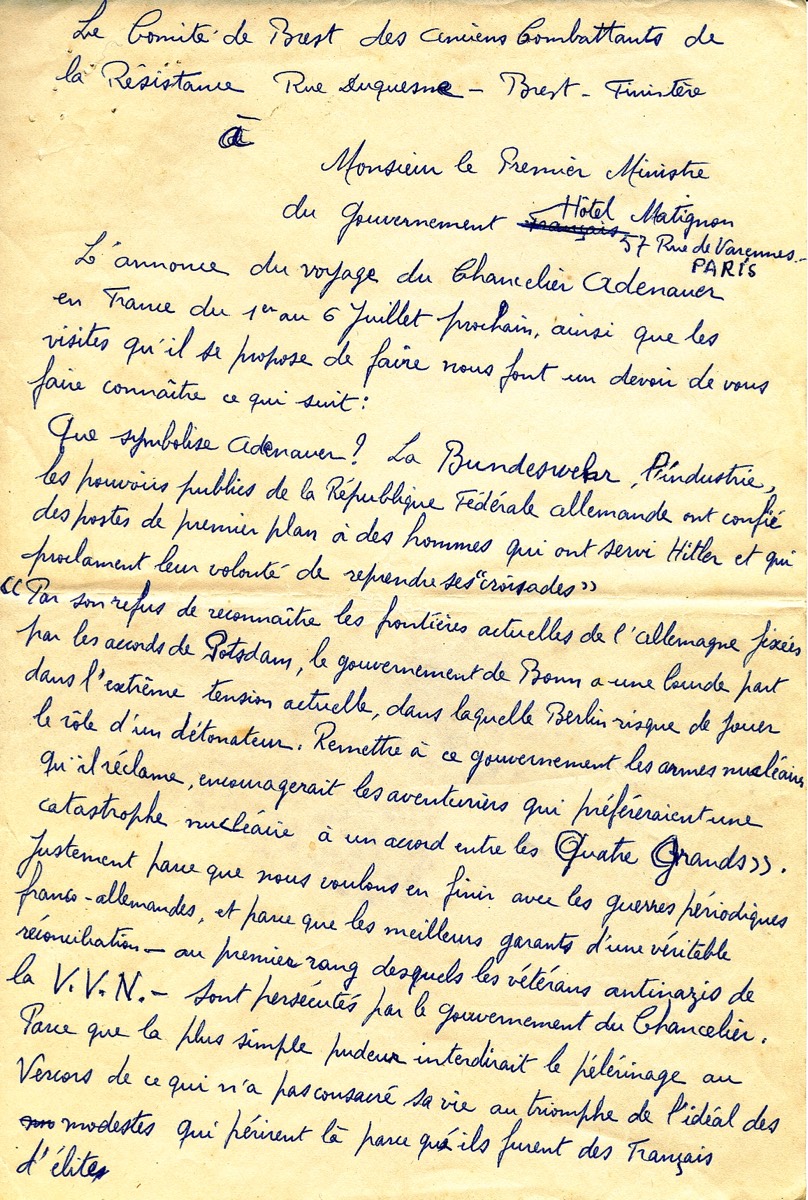 Le Comité de Brest des anciens Combattants de
la Résistance Rue Duquesne - Brest - Finistère
à
Monsieur le Premier Ministre
du gouvernement français Hôtel Matignon
57 Rue de Varennes -
PARIS
L'annonce du voyage du Chancelier Adenauer
en France du 1er au 6 Juillet prochain, ainsi que les
visites qu'il se propose de faire nous font un devoir de vous
faire connaître ce qui suit :
Que symbolise Adenauer ? La Bundeswehr, l'industrie,
les pouvoirs publics de la République Fédérale allemande ont confié
des postes de premier plan à des hommes qui ont servi Hitler et qui
proclament leur volonté de reprendre ses "croisades"
«Par son refus de reconnaître les frontières actuelles de l'allemagne fixées
par les accords de Potsdam, le gouvernement de Bonn a une lourde part
dans l'extrême tension actuelle, dans laquelle Berlin risque de jouer
le rôle d'un détonateur. Remettre à ce gouvernement les armes nucléaires
qu'il réclame, encouragerait les aventuriers qui préféreraient une
catastrophe nucléaire à un accord entre les Quatre Grands».
Justement parce que nous voulons en finir avec les guerres périodiques
franco-allemandes, et parce que les meilleurs garants d'une véritable
réconciliation - au premier rang desquels les vétérans antinazis de
la V.V.N. - sont persécutés par le gouvernement du Chancelier.
Parce que la plus simple pudeur interdirait le pélérinage au
Vercors de ce qui n'a pas consacré sa vie au triomphe de l'idéal des
modestes qui périrent là parce qu'ils furent des Français
d'élite